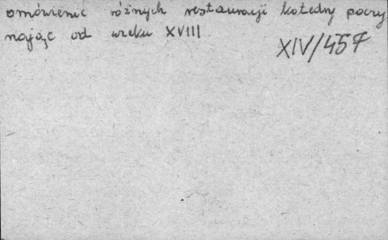 omówienie różnych restauracji katedry poczy
nając od wieku XVIII
XIV/457